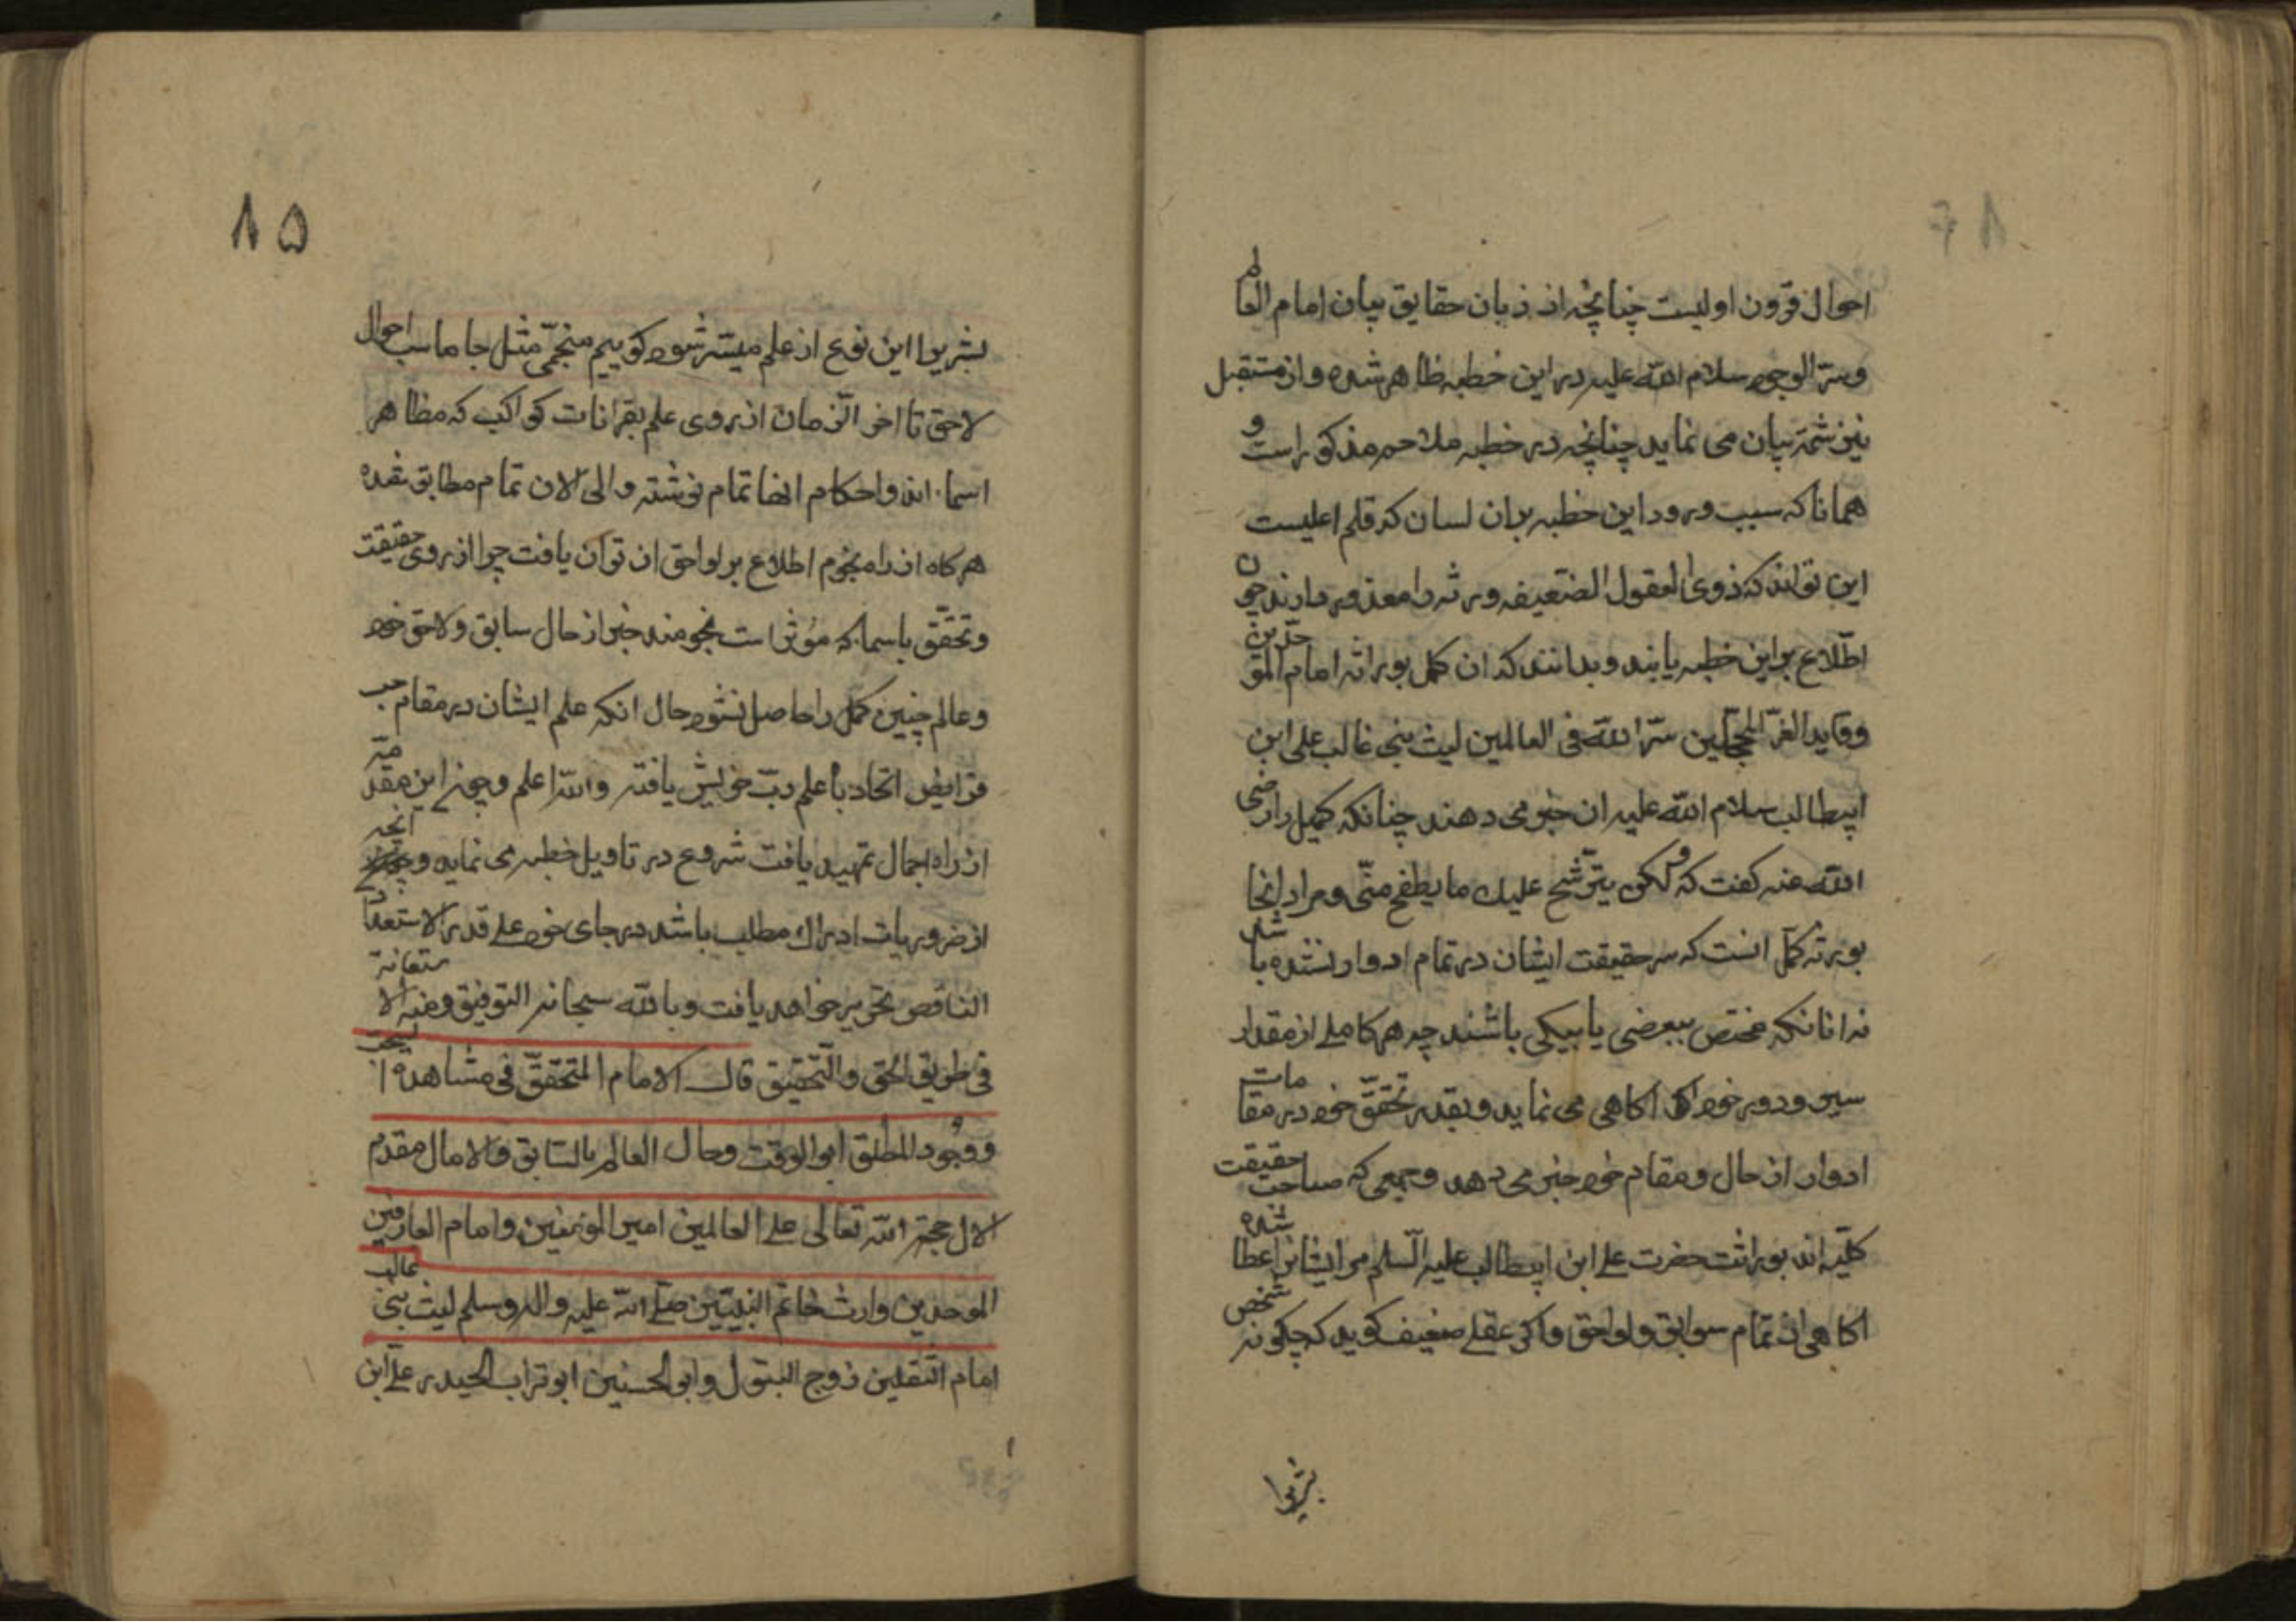 احوال قرون اولیست چنانچه از زبان حقایق بیان امام العالم
وسرّ الوجود سلام الله علیه در این خطبه ظاهر شده و از مستقبل
نیز شمّه بیان می نماید چنانچه در خطبه ملاحم مذکور است و
همانا که سبب ورود این خطبه بران لسان که قلم اعلیست
این تواند که ذوی العقول الضعیفه ورثه را معذور دارند چون
اطّلاع براین خطبه یابند وبدانند که ان کمل بوراثه امام الموحّدین
وقاید الغرّ المحجّلین سرّ الله فی العالمین لیث بنی غالب علی ابن
ابیطالب سلام الله علیه ان خبر می دهند چنانکه کمیل را رضی
الله عنه کفت که ولکن یترشّح علیك ما یطفح منّی ومراد انجا
بورثه کمّل انست که سر حقیقت ایشان در تمام ادوار نشده باشد
نه انانکه مختص ببعضی یا بیکی باشند چه هر کاملے از مقدار
سیر ودور خود اکاهی می نماید وبقدر تحقّق خود در مقامات
ادوار از حال ومقام خود خبر می دهد وجمعی که صاحب حقیقت
کلّیه اند بوراثت حضرت علے ابن ابیطالب علیه السّلم مر ایشانرا عطا شده
اکاهی از تمام سوابق ولواحق واکر عقلے ضعیف کوید که چکونه شخص
بشریرا
۱۵
بشریرا این نوع از علم میسّر شود کوییم منجّمی مثل جاماسب احوال
لاحق تا اخر الزمان از روی علم بقرانات کواکب که مظاهر
اسماء اند واحکام انها تمام نوشته والی الان تمام مطابق شده
هر کاه از راه نجوم اطلاع بر لواحق ان توان یافت چرا از روی حقیقت
وتحقّق باسماء که مؤثر است نجومند خبر از حال سابق ولاحق خود
وعالم چنین کمّل را حاصل نشود حال انکه علم ایشان در مقام حب
فرایض اتحاد با علم ربّ خویش یافته والله اعلم وچون این مقدّمه
از راه اجمال تمهید یافت شروع در تاویل خطبه می نماید و انچه
از ضروریات ادراك مطلب باشد در جای خود علے قدر الاستعداد
الناقص تحریر خواهد یافت وبالله سبحانه التوفیق ومنه الاستعانة
فی طریق الحق والتّحقیق قال الامام المتحقّق فی مشاهدة
ووجود المطلق ابو الوقت وحال العالم بالسّابق والامال مقدم
الال حجة الله تعالی علے العالمین امیر المؤمنین وامام العارفین
الموحدین وارث خاتم النبیّین صلّے الله علیه واله وسلم لیث بنی غالب
امام الثقلین زوج البتول وابو الحسنین ابو تراب الحیدر علے ابن